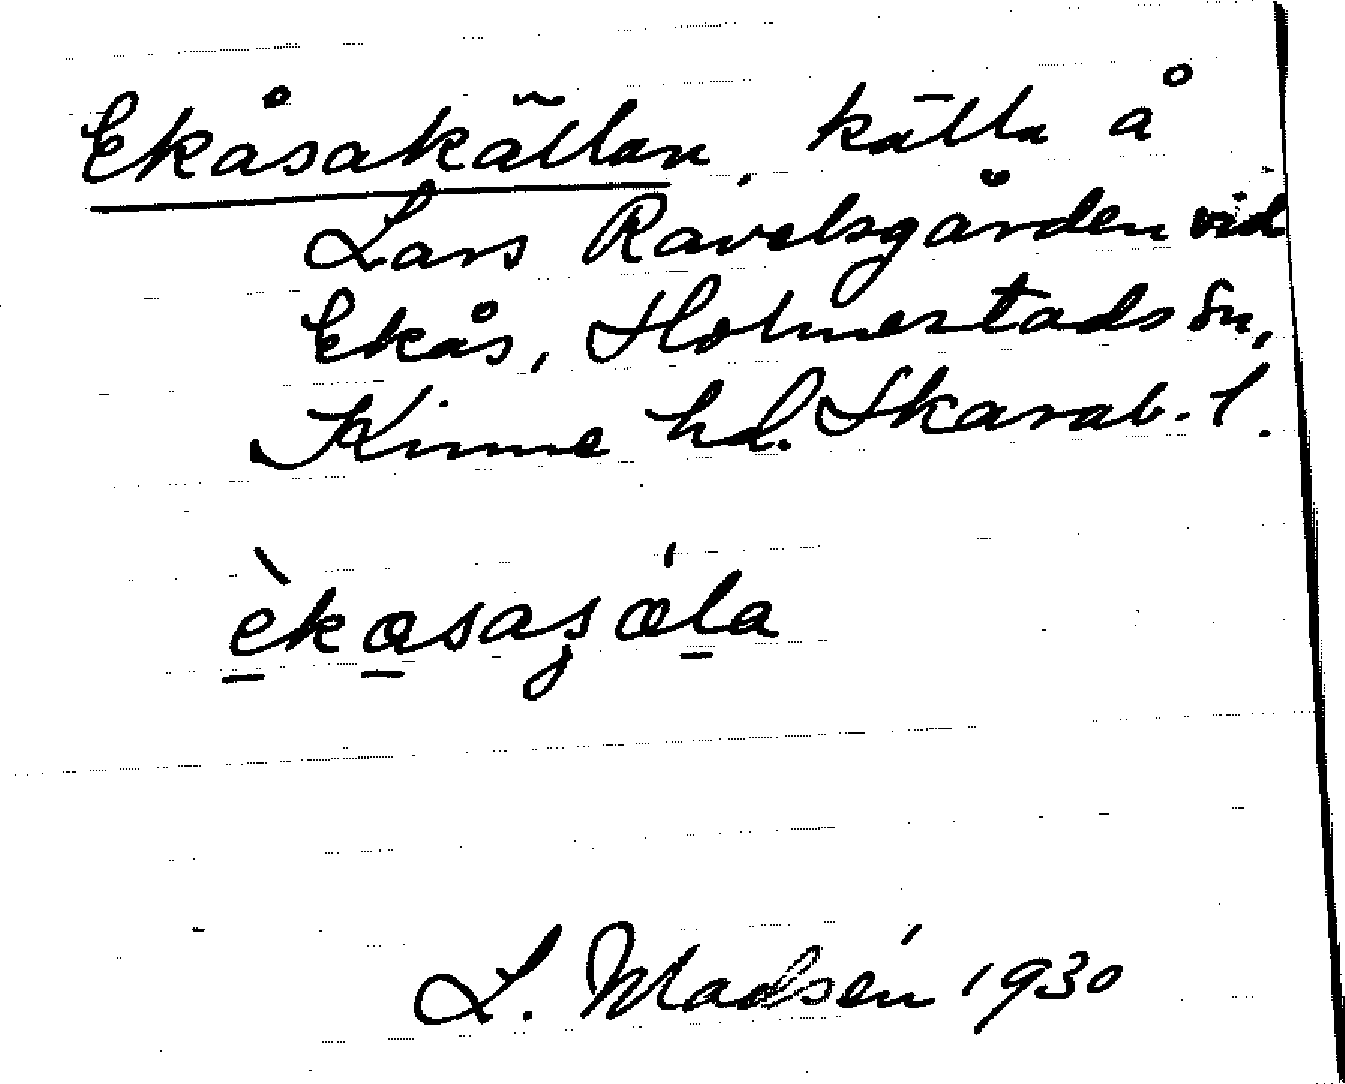 Ekåsakällan, källa å
Lars Ravelsgården vid
Ekås, Holmestads sn,
Kinne hd. Skarab. l.
L. Madsén 1930